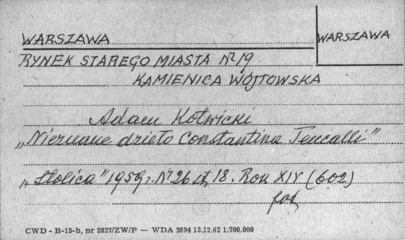 WARSZAWA
WARSZAWA
RYNEK STAREGO MIASTA Nr 19
KAMIENICA WÓJTOWSKA
Adam Kotwicki
„Nieznane dzieło Constantina Tencalli"
„Stolica" 1959 r. Nr 26 st. 18. Rok XIV (602)
fot.
CWD - B-15-b, nr 2827/ZW/P — WDA 2694 13.12.62 1.700.000